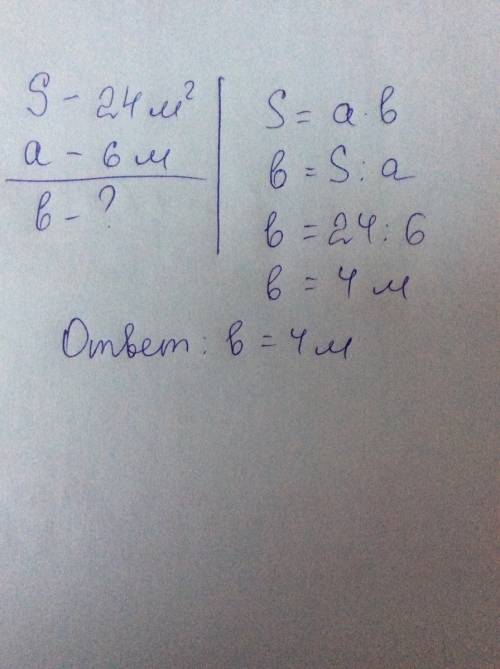 S - 24 м²
a - 6 м
в - ?
S = a · в
в = S : a
в = 24 : 6
в = 4 м
Ответ: в = 4 м